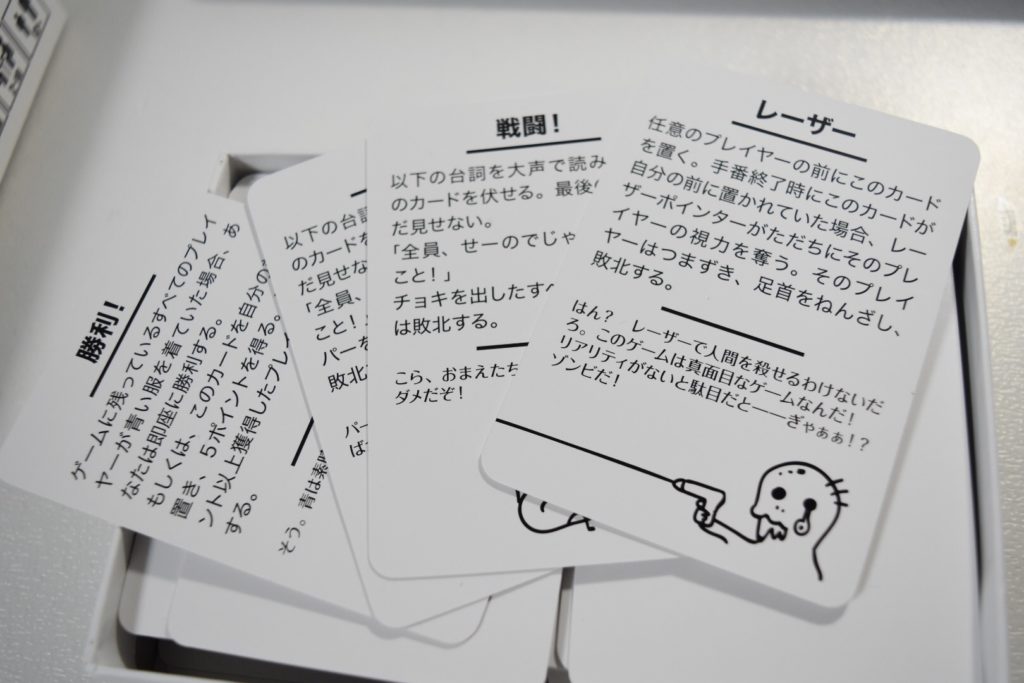 レーザー
任意のプレイヤーの前にこのカード
を置く。手番終了時にこのカードが
自分の前に置かれていた場合、レー
ザーポインターがただちにそのプレ
イヤーの視力を奪う。そのプレイ
ヤーはつまずき、足首をねんざし、
敗北する。
はん？　レーザーで人間を殺せるわけないだ
ろ。このゲームは真面目なゲームなんだ！
リアリティがないと駄目だと――ぎゃぁぁ！？
ゾンビだ！
戦闘！
以下の台詞を大声で読み
のカードを伏せる。最後
だ見せない。
「全員、せーのでじゃ
こと！」
チョキを出したす
は敗北する。
こら、おまえたち
ダメだぞ！
以下の台詞
のカードを
だ見せな
「全員、
こと！
パーを
敗北
パー
ば
勝利！
ゲームに残っているすべてのプレイ
ヤーが青い服を着ていた場合、あ
なたは即座に勝利する。
もしくは、このカードを自分の
置き、5ポイントを得る。
ント以上獲得したプレイ
する。
そう。青は素